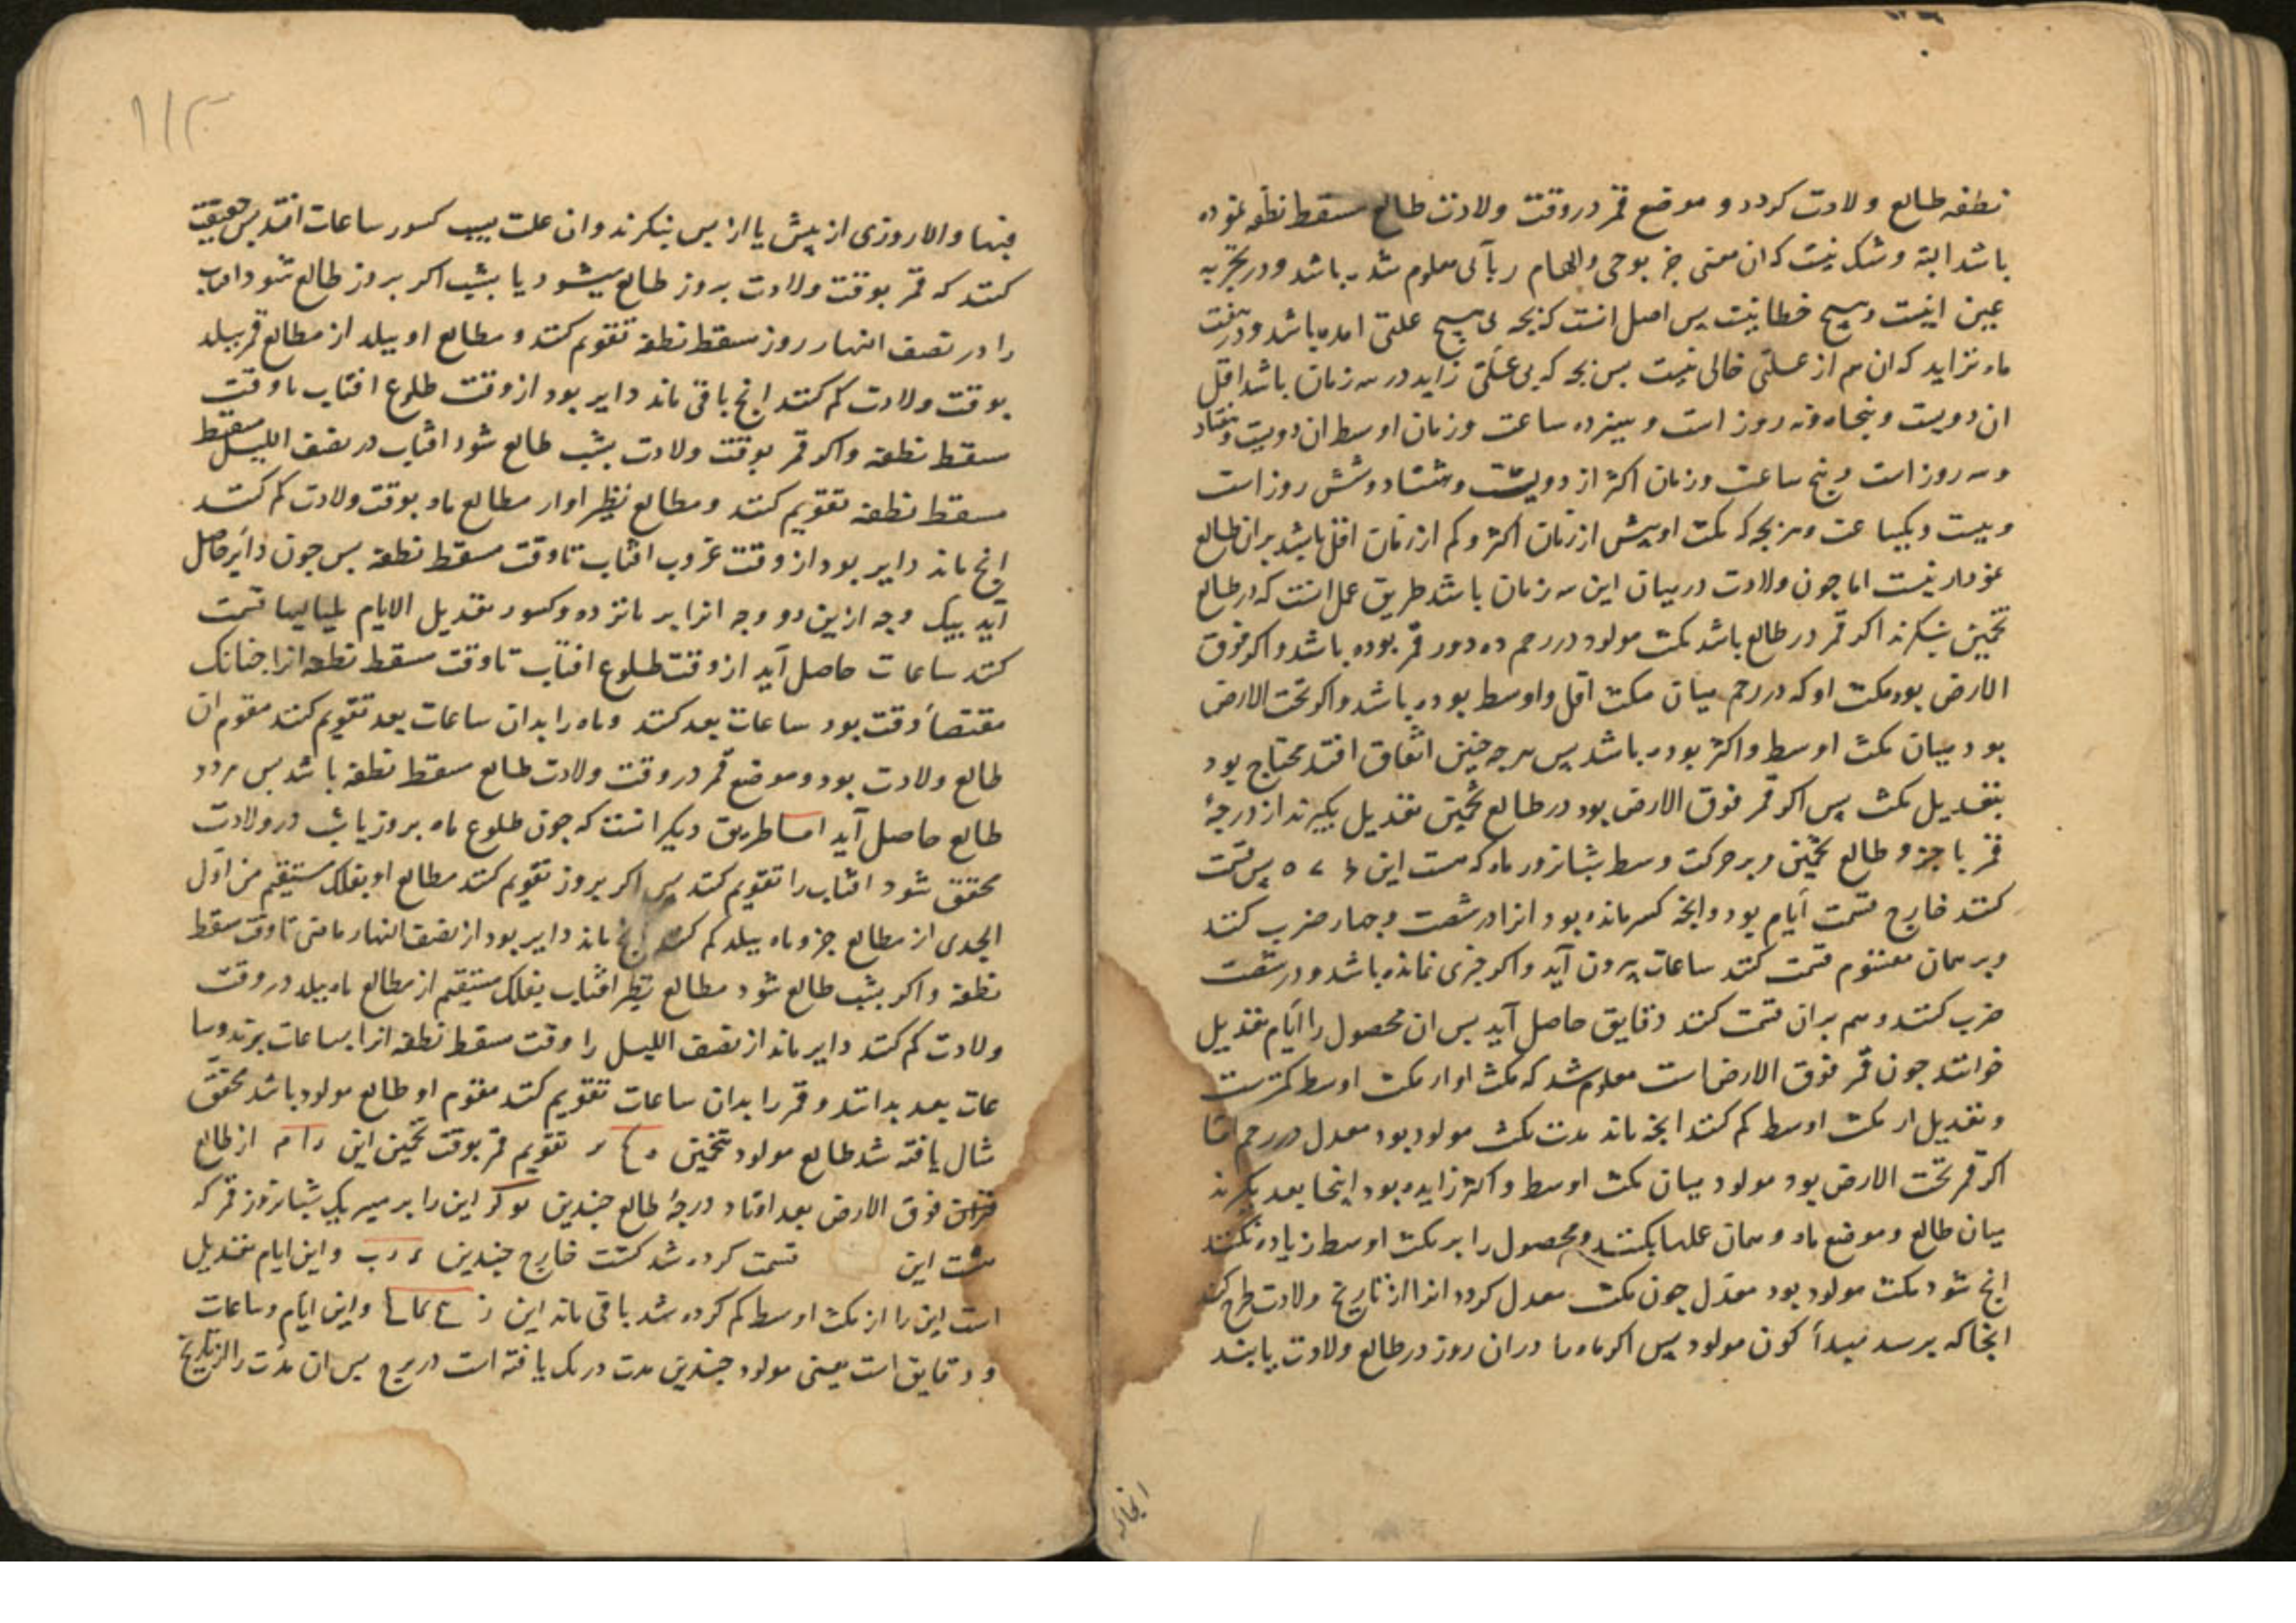 نطفه طالع ولادت کردد و موضع قمر در وقت ولادت طالع مسقط نطفه بوده
باشد البته و شک نیست که ان معنی جز بوحی و الهام ربانی معلوم شده باشد و در تجربه
عین اینست و هیچ خطا نیست پس اصل انست که بچه بی هیچ علتی امده باشد و در هفت
ماه نزاید که ان هم از علتی خالی نیست بس بچه که بی علتی زاید در سه زمان باشد اقل
ان دویست و پنجاه و نه روز است و سیزده ساعت و زمان اوسط ان دویست و هفتاد
و سه روز است و پنج ساعت و زمان اکثر از دویست و هشتاد و شش روز است
و بیست و یکساعت و هر بچه که مکث او بیش از زمان اکثر و کم از زمان اقل باشد بران طالع
نمودار نیست اما جون ولادت در میان این سه زمان باشد طریق عمل انست که در طالع
تخمین بنکرند اکر قمر در طالع باشد مکث مولود در رحم ده دور قمر بوده باشد و اکر فوق
الارض بود مکث او که در رحم میان مکث اقل و اوسط بوده باشد و اکر تحت الارض
بود میان مکث اوسط و اکثر بوده باشد پس هرجه جنین اتفاق افتد محتاج بود
بتعدیل مکث پس اکر قمر فوق الارض بود در طالع تخمین تعدیل بکیرند از درجهٔ
قمر با جزو طالع تخمین و بر حرکت وسط شبانروز ماه که هست این پس قسمت
کنند خارج قسمت ایام بود و انچه کسر مانده بود انرا در شصت و جهار ضرب کنند
و بر همان مقسوم قسمت کنند ساعات بیرون آید و اکر جزی نمانده باشد و در شصت
ضرب کنند و هم بران قسمت کنند دقایق حاصل آید بس ان محصول را ایام تعدیل
خوانند جون قمر فوق الارض است معلوم شد که مکث او از مکث اوسط کمترست
و تعدیل از مکث اوسط کم کنند انچه ماند مدت مکث مولود بود معدل در رحم اما
اکر قمر تحت الارض بود مولود میان مکث اوسط و اکثر زاییده بود اینجا بعد بکیرند
میان طالع و موضع ماه و همان عملها بکنند و محصول را بر مکث اوسط زیاده کنند
انج شود مکث مولود بود معدل جون مکث معدل کردد انرا از تاریخ ولادت طرح کنند
انجا که برسد مبدأ کون مولود پس اکر ماه را دران روز در طالع ولادت یابند
انجا که
۱۱۳
فبها و الا روزی از پیش یا از پس بنکرند و ان علت بسبب کسور ساعات افتد بس حقیقت
کنند که قمر بوقت ولادت بروز طالع میشود یا بشب اکر بروز طالع شود افتاب
را در نصف النهار روز مسقط نطفه تقویم کنند و مطالع او ببلد از مطالع قمر ببلد
بوقت ولادت کم کنند انج باقی ماند دایر بود از وقت طلوع افتاب تا وقت
سقط نطفه و اکر قمر بوقت ولادت بشب طالع شود افتاب در نصف اللیل مسقط
مسقط نطفه تقویم کنند و مطالع نظیر او از مطالع ماه بوقت ولادت کم کنند
انج ماند دایر بود از وقت غروب افتاب تا وقت مسقط نطفه بس جون دایر حاصل
آید بیک وجه ازین دو وجه انرا بر پانزده و کسور تعدیل الایام بلیالیها قسمت
کنند ساعات حاصل آید از وقت طلوع افتاب تا وقت مسقط نطفه انرا جنانک
مقتضاً وقت بود ساعات بعد کنند و ماه را بدان ساعات بعد تقویم کنند مقوم ان
طالع ولادت بود و موضع قمر در وقت ولادت طالع مسقط نطفه باشد بس هر دو
طالع حاصل آید اما طریق دیکر انست که جون طلوع ماه بروز یا بشب در ولادت
محقق شود افتاب را تقویم کنند پس اکر بروز تقویم کنند مطالع او بفلک مستقیم من اول
الجدی از مطالع جزو ماه ببلد کم کنند انج ماند دایر بود از نصف النهار ماضی تا وقت سقط
نطفه و اکر بشب طالع شود مطالع نظیر افتاب بفلک مستقیم از مطالع ماه ببلد در وقت
ولادت کم کنند دایر ماند از نصف اللیل را وقت مسقط نطفه انرا بساعات برند و سا
عات بعد بدانند و قمر را بدان ساعات تقویم کنند مقوم او طالع مولود باشد محقق
مثال یافته شد طالع مولود بتخمین تقویم قمر بوقت تخمین این از طالع
فوق الارض بعد افتاد درجهٔ طالع جندین این را بر مسیر یک شبانروز قمر که
هست این قسمت کرده شد کشت خارج جندین و این ایام تعدیل
است این را از مکث اوسط کم کرده شد باقی ماند این و این ایام و ساعات
و دقایق است یعنی مولود جندین مدت درنک یافته است در برج بس ان مدت را از تاریخ